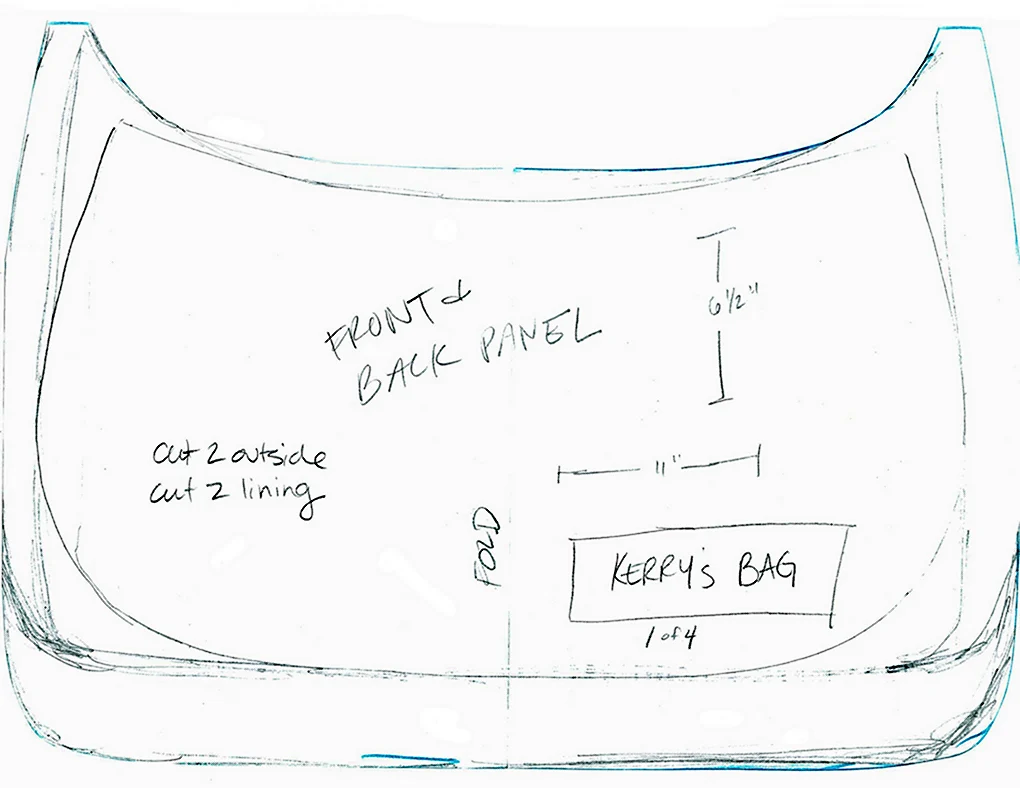 FRONT &
BACK PANEL
6 1/2"
cut 2 outside
cut 2 lining
11"
FOLD
KERRY's BAG
1 of 4